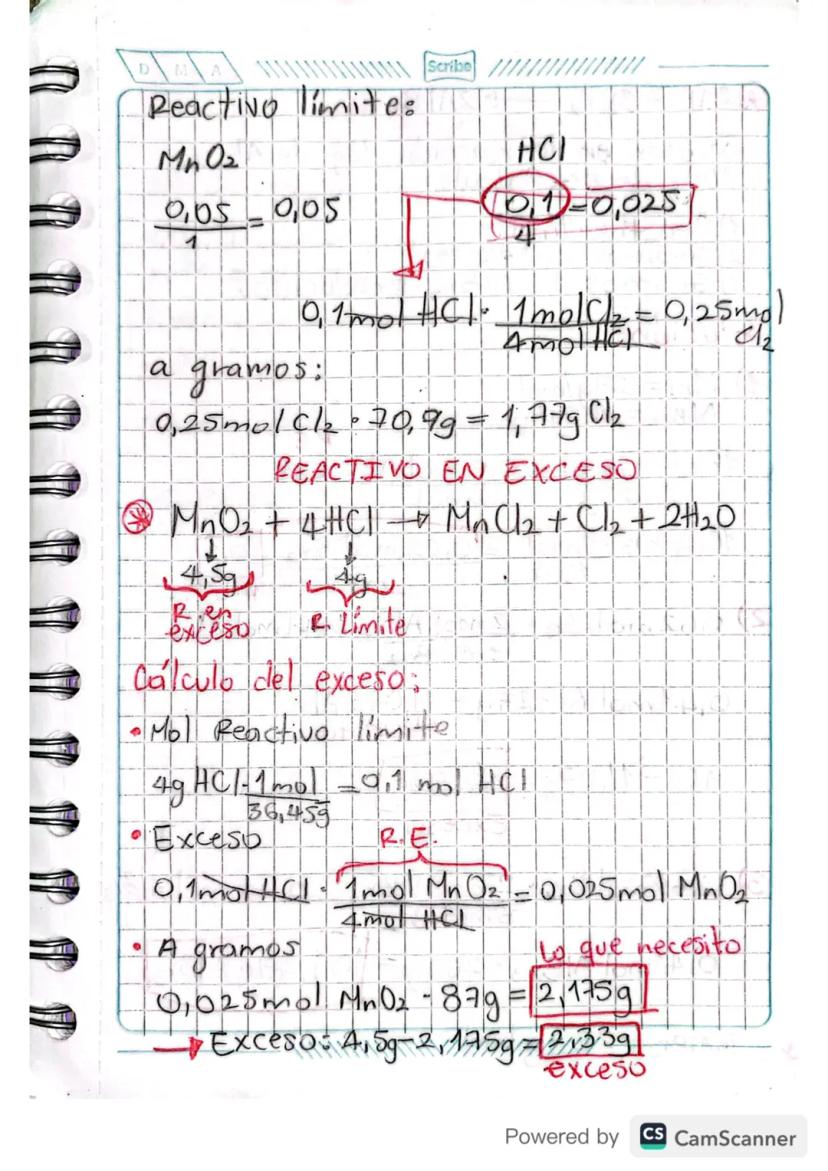 D M A
Scribe
Reactivo límite:
MnO2 HCl
0,05/1 = 0,05 0,1/4 = 0,025
0,1mol HCl · 1molCl2/4molHCl = 0,25mol Cl2
a gramos:
0,25mol Cl2 · 70,9g = 1,77g Cl2
REACTIVO EN EXCESO
MnO2 + 4HCl → MnCl2 + Cl2 + 2H2O
↓ ↓
4,5g 4g
R. en exceso R. Límite
Cálculo del exceso:
• Mol Reactivo límite
4g HCl · 1mol/36,45g = 0,1 mol HCl
• Exceso R.E.
0,1mol HCl · 1mol MnO2/4mol HCl = 0,025mol MnO2
• A gramos Lo que necesito
0,025mol MnO2 · 87g = 2,175g
→ Exceso: 4,5g-2,175g = 2,33g
exceso
Powered by CS CamScanner